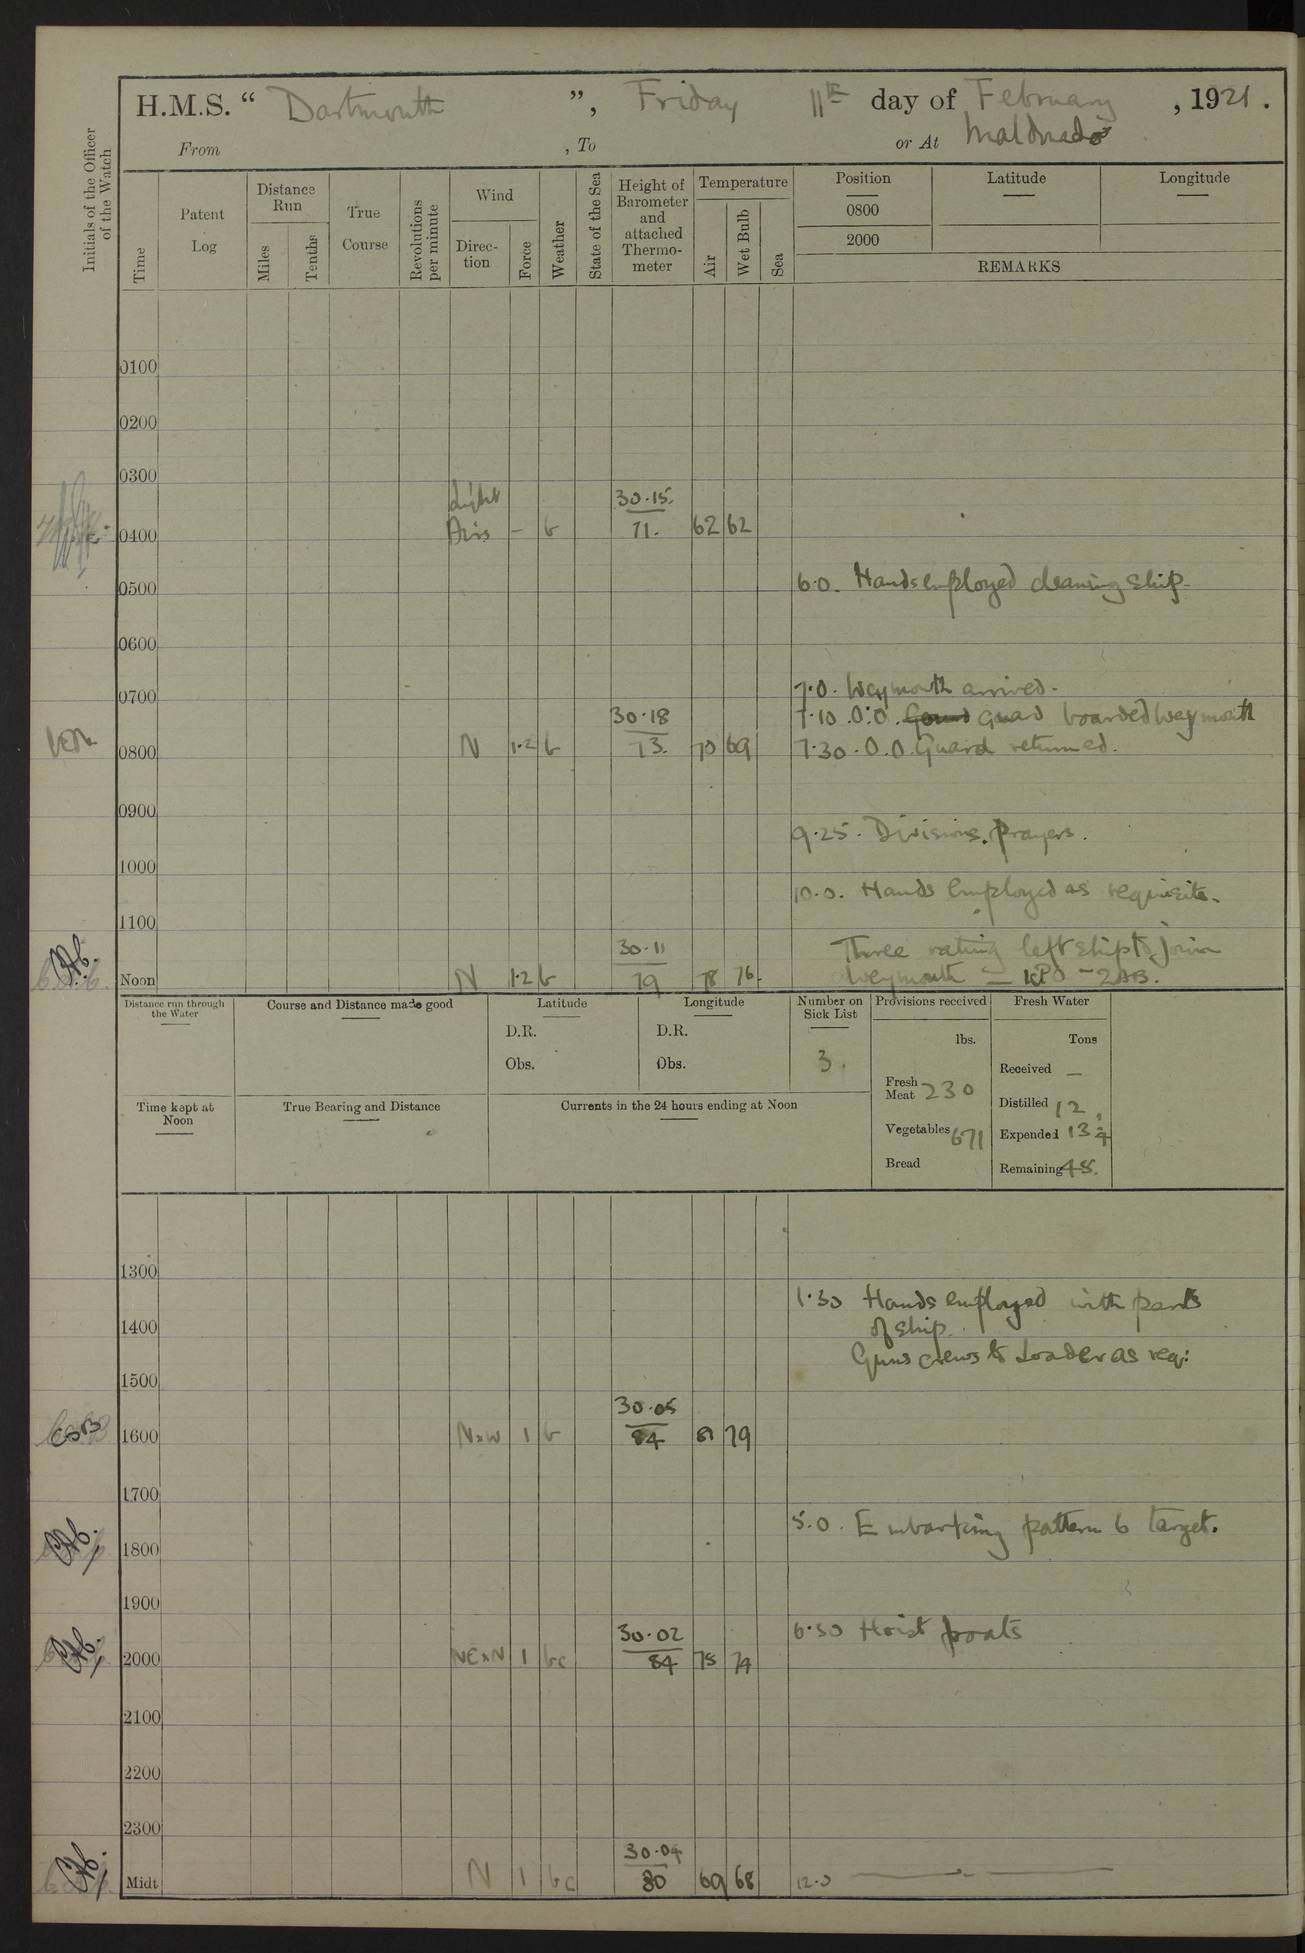 H.M.S. “ Dartmouth ”, Friday 11th day of February, 1921.
From , To or At Maldonado
Initials of the Officer of the Watch
Time
Patent Log
Distance Run
Miles
Tenths
True Course
Revolutions per minute
Wind
Direc-tion
Force
Weather
State of the Sea
Height of Barometer and attached Thermo-meter
Temperature
Air
Wet Bulb
Sea
Position
0800
2000
Latitude
Longitude
REMARKS
0100
0200
0300
Light 30.15
0400 Airs - b 71. 62 62
6.0. Hands employed cleaning ship.
0500
0600
7.0. Weymouth arrived.
0700
30.18 7.10. O.O. Gourd Guard boarded Weymouth
0800 N 1.2 b 73. 70 69 7.30. O.O. Guard returned.
0900
9.25. Divisions. Prayers.
1000
10.0. Hands employed as requisite.
1100
30.11 Three rating left ship to join
Noon N 1.2 b 79 78 76. Weymouth — 1 PO - 2 AB.
Distance run through the Water
Course and Distance made good
Latitude
D.R.
Obs.
Longitude
D.R.
Obs.
Number on Sick List
3.
Provisions received
lbs.
Fresh Meat 230
Vegetables 671
Bread
Fresh Water
Tons
Received —
Distilled 12
Expended 13
Remaining 48.
Time kept at Noon
True Bearing and Distance
Currents in the 24 hours ending at Noon
1300
1.30 Hands employed with parts
1400 of ship.
Guns crews to Loader as req:
1500
30.05
1600 NxW 1 b 84 81 79
1700
5.0. Embarking pattern 6 target.
1800
1900
30.02 6.30 Hoist boats
2000 NExN 1 bc 84 75 74
2100
2200
2300
30.04
Midt N 1 bc 80 69 68 12.0